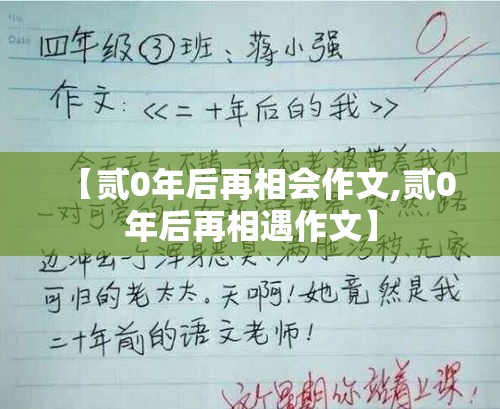 No.
Date
四年级③班:蒋小强
0
作文:<<二十年后的我>>
今天天气不错,我和老婆带着我们
【贰0年后再相会作文,贰0
一对可爱的
年后再相遇作文】
边冲出一个浑身恶臭、满脸污秽、无家
可归的老太太。天啊!她竟然是我
二十年前的语文老师!
这个星期你站着上课!